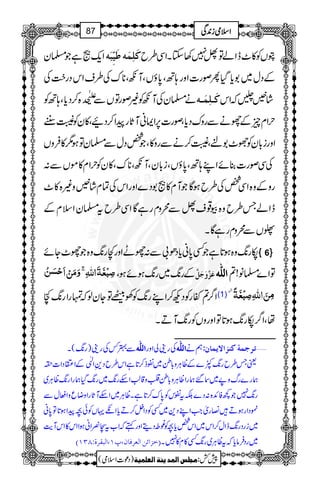 اسلامی زندگی
87
چوں کو کاٹ ڈالے تو پھل نہیں کھا سکتا۔ اسی طرح کَلِمَہ طَیِّبَہ ایک بیج ہے جو مسلمان
کے دل میں بویا گیا پھر صورت اور ہاتھ، پاؤں، آنکھ، ناک کی طرف اس درخت کی
شاخیں چلیں کہ اس کَلِمَہ نے مسلمان کی آنکھ کو غیر صورتوں سے علیحدہ کر دیا، ہاتھ کو
حرام چیز کے چھونے سے روکا، صورت پر ایمانی آثار پیدا کر دیئے، کان کو غیبت سننے
اور زبان کو جھوٹ بولنے، غیبت کرنے سے روکا، جو شخص دل سے تو مسلمان ہو مگر کافروں
کی سی صورت بنائے اپنے ہاتھ، پاؤں، زبان، آنکھ، ناک، کان کو حرام کاموں سے نہ
روکے وہ اسی شخص کی طرح ہوگا جو آم کا بیج بودے اور اس کی تمام شاخیں وغیرہ کاٹ
ڈالے جس طرح وہ بیوقوف پھل سے محروم رہے گا اسی طرح یہ مسلمان اسلام کے
پھلوں سے محروم رہے گا۔
{6} پکا رنگ وہ ہوتا ہے جو کسی پانی یا دھوبی سے نہ چھوٹے اور کچا رنگ وہ جو چھوٹ جائے
تو اے مسلمانو! تم اللّٰہ عَزَّ وَجَلَّ کے رنگ میں رنگے ہوئے ہو، صِبْغَۃَ اللّٰہِ ۚ وَمَنْ اَحْسَنُ
مِنَ اللّٰہِ صِبْغَۃً (1) اگر تم کفار کو دیکھ کر اپنے رنگ کو کھو بیٹھے تو جان لو کہ تمہارا رنگ کچا
تھا، اگر پکا رنگ ہوتا تو اوروں کو رنگ آتے۔
1 ...... ترجمۂ کنز الایمان: ہم نے اللّٰہ کی رینی لی اور اللّٰہ سے بہتر کس کی رینی (رنگ)۔
یعنی جس طرح رنگ کپڑے کے ظاہر و باطن میں نفوذ کرتا ہے اس طرح دین الٰہی کے اعتقادات حقہ
ہمارے رگ و پے میں سما گئے ہمارا ظاہر و باطن قلب و قالب اس کے رنگ میں رنگ گیا ہمارا رنگ ظاہری
رنگ نہیں جو کچھ فائدہ نہ دے بلکہ یہ نفوس کو پاک کرتا ہے۔ ظاہر میں اس کے آثار اوضاع و افعال سے
نمودار ہوتے ہیں نصاریٰ جب اپنے دین میں کسی کو داخل کرتے یا ان کے یہاں کوئی بچہ پیدا ہوتا تو پانی
میں زرد رنگ ڈال کر اس میں اس شخص یا بچہ کو غوطہ دیتے اور کہتے کہ اب یہ سچا نصرانی ہوا اس کا اس آیت
میں رد فرمایا کہ یہ ظاہری رنگ کسی کام کا نہیں۔ (خزائن العرفان، پ۱، البقرۃ:۱۳۸)
پیش کش: مجلس المدینۃ العلمیۃ (دعوتِ اسلامی)